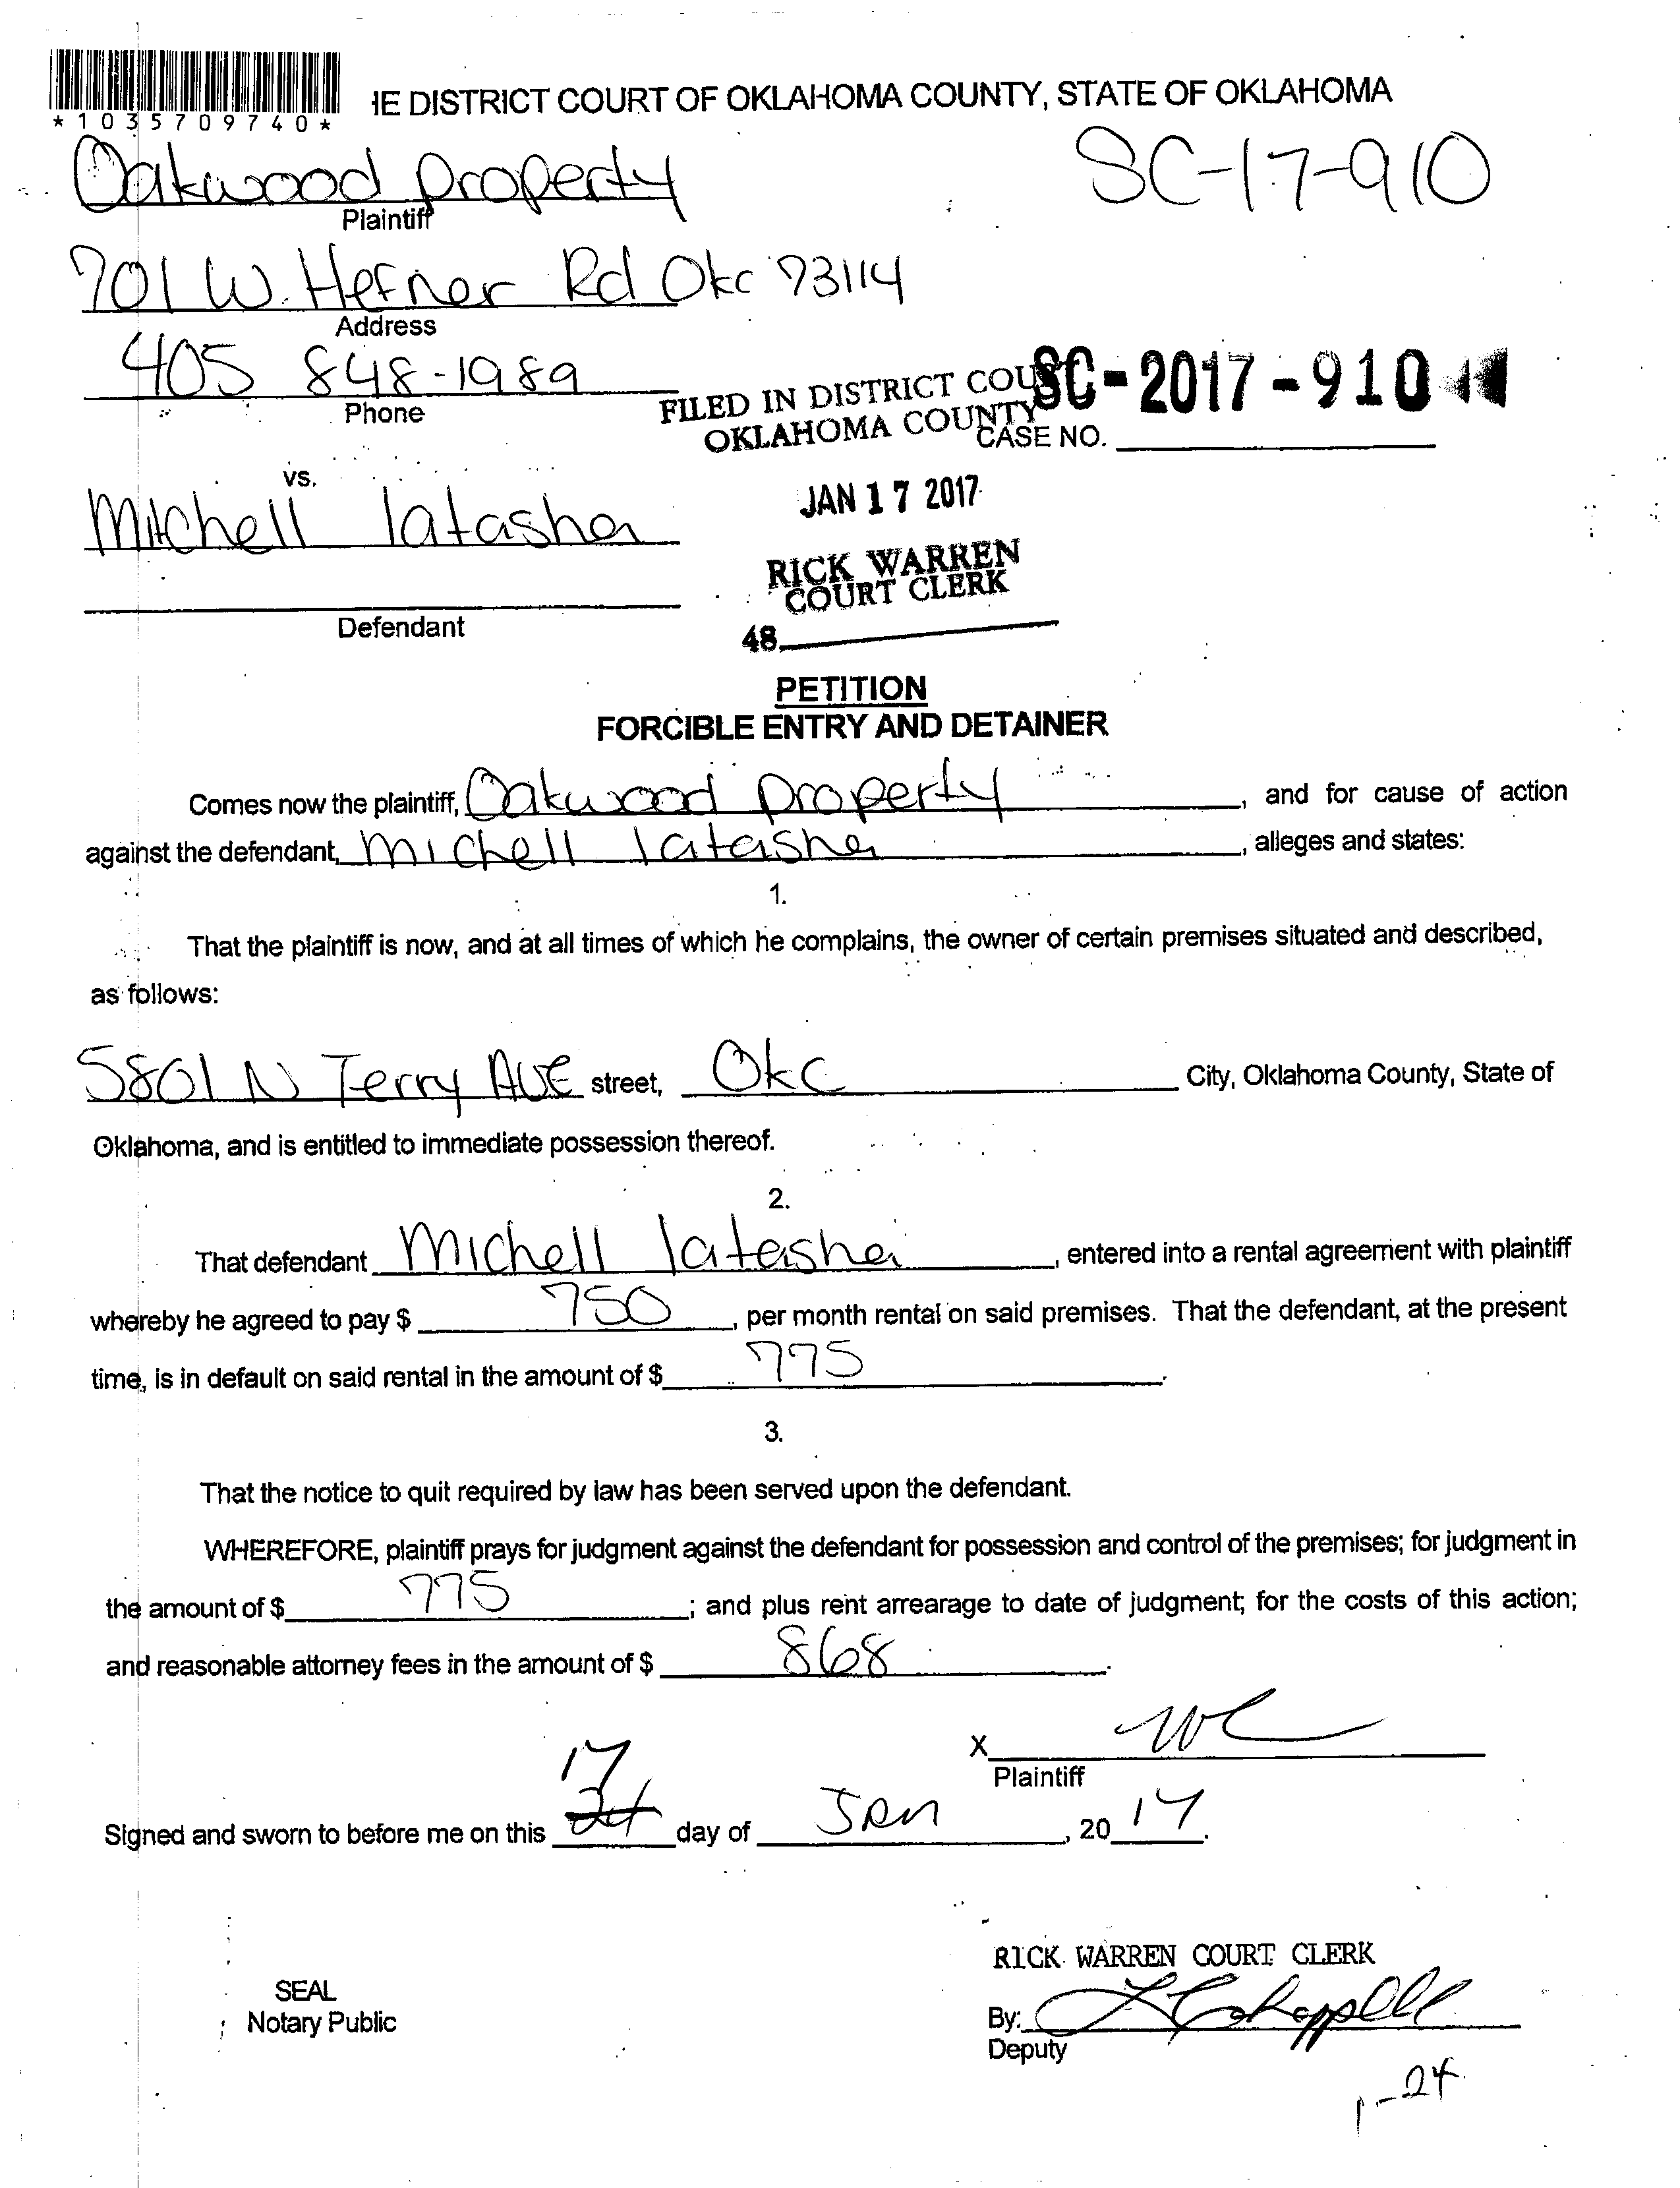 *1035709740*
IE DISTRICT COURT OF OKLAHOMA COUNTY, STATE OF OKLAHOMA
Oakwood property
SC-17-910
Plaintiff
701 W. Hefner Rd Okc 73114
Address
405 848-1989
Phone
FILED IN DISTRICT COU
SC-2017-910
OKLAHOMA COUNTY
CASE NO.
vs.
JAN 17 2017
Mitchell latasha
RICK WARREN
COURT CLERK
Defendant
48
PETITION
FORCIBLE ENTRY AND DETAINER
Comes now the plaintiff, Oakwood property, and for cause of action
against the defendant, Michell latasha, alleges and states:
1.
That the plaintiff is now, and at all times of which he complains, the owner of certain premises situated and described,
as follows:
5801 N Terry AVE street, Okc City, Oklahoma County, State of
Oklahoma, and is entitled to immediate possession thereof.
2.
That defendant Michell latasha, entered into a rental agreement with plaintiff
whereby he agreed to pay $ 750, per month rental on said premises. That the defendant, at the present
time, is in default on said rental in the amount of $ 775.
3.
That the notice to quit required by law has been served upon the defendant.
WHEREFORE, plaintiff prays for judgment against the defendant for possession and control of the premises; for judgment in
the amount of $ 775; and plus rent arrearage to date of judgment; for the costs of this action;
and reasonable attorney fees in the amount of $ 868.
X
Plaintiff
17
Signed and sworn to before me on this 24 day of Jan, 20 17.
RICK WARREN COURT CLERK
SEAL
Notary Public
By:
Deputy
1-24